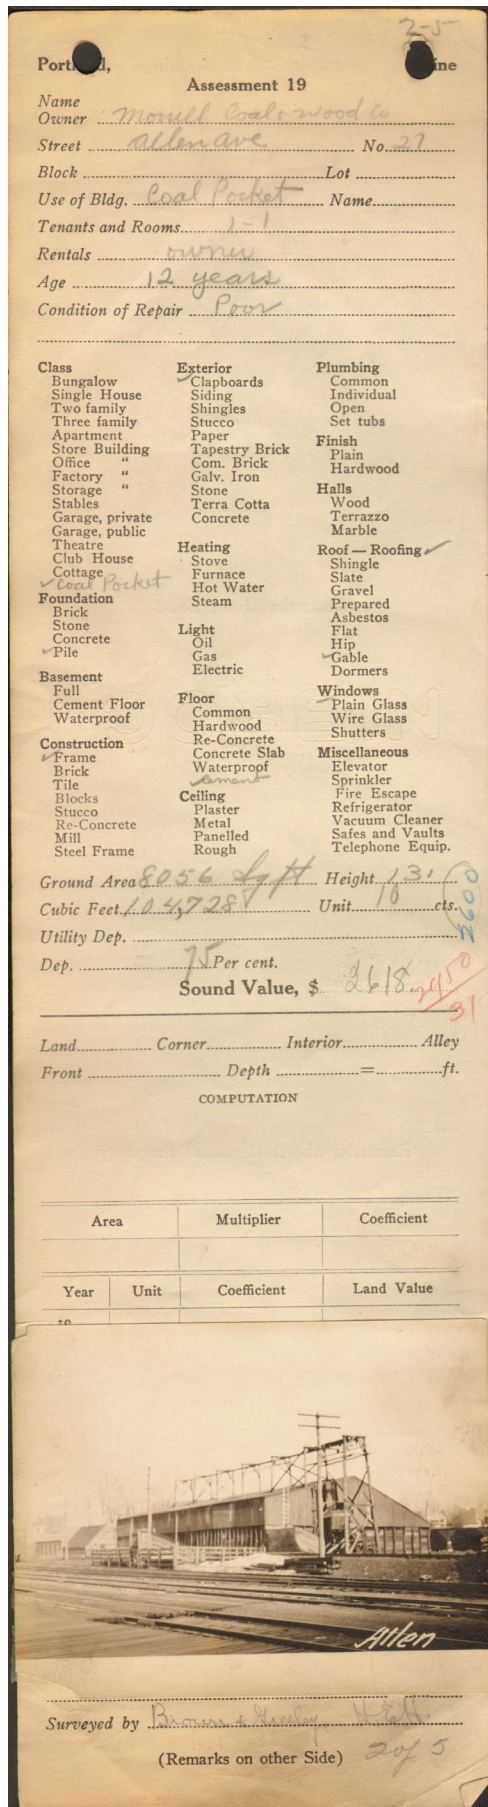 2-5
Portland, Maine
Assessment 19
Name
Owner Morrill Coal & Wood Co
Street Allen Ave No. 27
Block Lot
Use of Bldg. Coal Pocket Name
Tenants and Rooms 1-1
Rentals owner
Age 12 years
Condition of Repair Poor
Class
Bungalow
Single House
Two family
Three family
Apartment
Store Building
Office "
Factory "
Storage "
Stables
Garage, private
Garage, public
Theatre
Club House
Cottage
✓ Coal Pocket
Foundation
Brick
Stone
Concrete
✓ Pile
Basement
Full
Cement Floor
Waterproof
Construction
✓ Frame
Brick
Tile
Blocks
Stucco
Re-Concrete
Mill
Steel Frame
Exterior
✓ Clapboards
Siding
Shingles
Stucco
Paper
Tapestry Brick
Com. Brick
Galv. Iron
Stone
Terra Cotta
Concrete
Heating
Stove
Furnace
Hot Water
Steam
Light
Oil
Gas
Electric
Floor
Common
Hardwood
Re-Concrete
Concrete Slab
Waterproof
✓ cement
Ceiling
Plaster
Metal
Panelled
Rough
Plumbing
Common
Individual
Open
Set tubs
Finish
Plain
Hardwood
Halls
Wood
Terrazzo
Marble
Roof — Roofing ✓
Shingle
Slate
Gravel
Prepared
Asbestos
Flat
Hip
✓ Gable
Dormers
Windows
✓ Plain Glass
Wire Glass
Shutters
Miscellaneous
Elevator
Sprinkler
Fire Escape
Refrigerator
Vacuum Cleaner
Safes and Vaults
Telephone Equip.
Ground Area 8056 Sq ft Height 13'
Cubic Feet 104,728 Unit 10 cts.
2600
Utility Dep.
Dep. 75 Per cent.
Sound Value, $ 2618
2450
31
Land Corner Interior Alley
Front Depth = ft.
COMPUTATION
Area Multiplier Coefficient
Year Unit Coefficient Land Value
19
Allen
Surveyed by Brown & Greeley, H.E.H.
(Remarks on other Side) 2 of 5